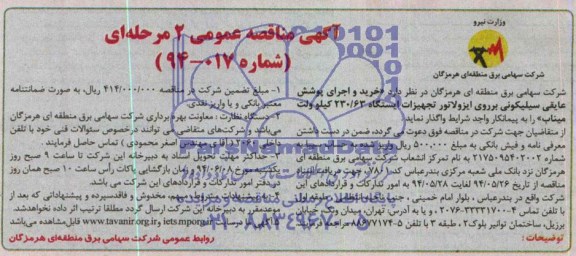 وزارت نیرو
شرکت سهامی برق منطقه‌ای هرمزگان
آگهی مناقصه عمومی ۲ مرحله‌ای
(شماره ۰۱۷-۹۴)
شرکت سهامی برق منطقه ای هرمزگان در نظر دارد «خرید و اجرای پوشش
عایقی سیلیکونی برروی ایزولاتور تجهیزات ایستگاه ۲۳۰/۶۳ کیلو ولت
میناب» را به پیمانکار واجد شرایط واگذار نماید.
از متقاضیان جهت شرکت در مناقصه فوق دعوت می گردد، ضمن در دست داشتن
معرفی نامه و فیش بانکی به مبلغ ۵۰۰/۰۰۰ ریال
شماره ۲۱۷۵۰۹۵۴۰۲۰۰۲ به نام تمرکز انشعاب شرکت سهامی برق منطقه ای
هرمزگان نزد بانک ملی شعبه مرکزی بندرعباس کد ۷۸۰۱ جهت دریافت اسناد
مناقصه از تاریخ ۹۴/۰۵/۲۶ لغایت ۹۴/۰۵/۲۸ به امور تدارکات و قراردادهای این
شرکت واقع در بندرعباس ، بلوار امام خمینی ،
با تلفن تماس ۴-۳۳۳۳۱۷۰۰-۰۷۶ و یا به آدرس تهران، میدان ونک، خیابان
برزیل، ساختمان توانیر بلوک ۲ ، طبقه ۳ با تلفن
۱- مبلغ تضمین شرکت در مناقصه ۴۱۴/۰۰۰/۰۰۰ ریال، به صورت ضمانتنامه
معتبر بانکی و یا واریز نقدی.
۲- دستگاه نظارت : معاونت بهره برداری شرکت سهامی برق منطقه ای هرمزگان
می‌باشد و شرکت‌های متقاضی می توانند درخصوص سئوالات فنی خود با تلفن
داخلی آقای مهندس اصغر محمودی ) تماس حاصل فرمایند.
حداکثر مهلت تحویل اسناد به دبیرخانه این شرکت تا ساعت ۹ صبح روز
یکشنبه مورخ و زمان بازگشایی پاکات رأس ساعت ۱۰ صبح همان روز
در دفتر امور تدارکات و قراردادهای این شرکت می باشد.
مخدوش و فاقدسپرده و پیشنهاداتی که بعد از
موعد مقرر به دبیرخانه این شرکت ارسال گردد مطلقا ترتیب اثر داده نخواهدشد.
iets.mporg.ir و www.tavanir.org.ir قابل مشاهده می‌باشد
روابط عمومی شرکت سهامی برق منطقه‌ای هرمزگان
ParsNamadData